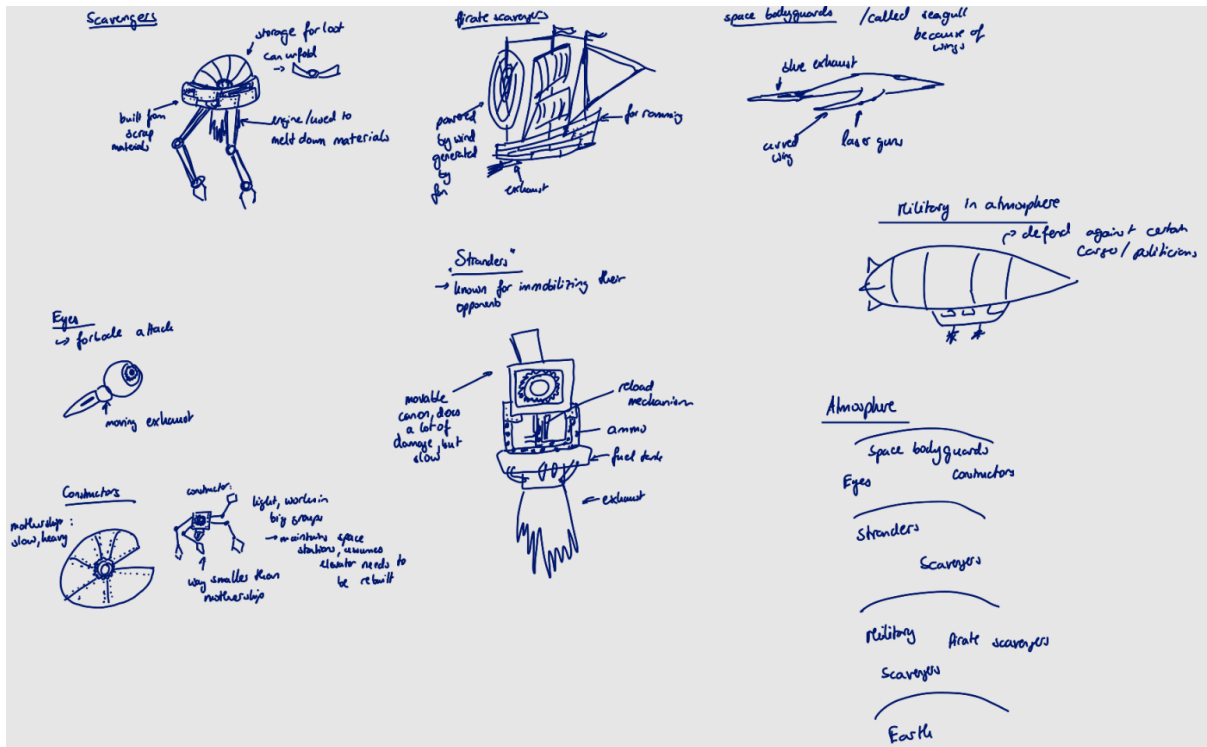 Scavengers
storage for loot
can unfold
built from
scrap
materials
engine/used to
melt down materials
Pirate scavengers
powered
by wind
generated
by
fan
for ramming
exhaust
space bodyguards
/called seagull
because of
wings
blue exhaust
curved
wing
laser guns
Military in atmosphere
defend against certain
cargo/politicians
"Stranders"
known for immobilizing their
opponents
movable
canon, does
a lot of
damage, but
slow
reload
mechanism
ammo
fuel tank
exhaust
Eyes
attack
moving exhaust
Constructors
mothership:
slow, heavy
constructor:
light, works in
big groups
maintains space
stations, assumes
elevator needs to
be rebuilt
way smaller than
mothership
Atmosphere
space bodyguards
Eyes
Constructors
Stranders
Scavengers
Military
Pirate scavengers
Scavengers
Earth